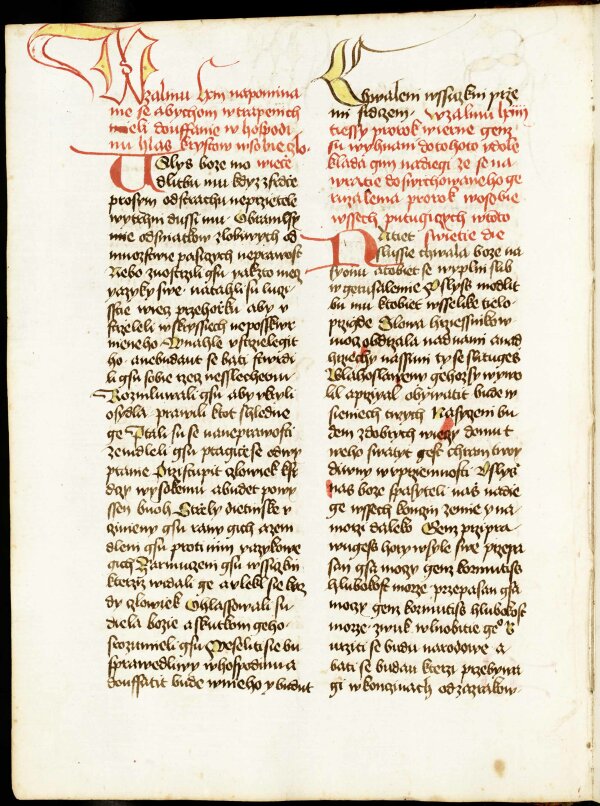 W zalmu lxiii napomina
nie se abychom w trapenich
mieli douffanie w hospodi
nu hlas krystow w sobie zlo
Uslys boze mo wiece
dlitbu mu kdyz zsedce
prosym od strachu neprzietele
wytchni dussi mu Obranilsy
mie od snatkow zlobiwych od
mnozstwie pasiczych neprawost
Nebo znostrzili gsu yakzto mecz
yazyky swe natahli su luczi
sstie wiecz przehorzku aby
strzeleli w skrysiech neposskwr
nieneho Wnahle vstrzielegit
ho anebudaut se bati stwrdi
li gsu sobie rzecz nesslechetnu
Rozmluwali gsu aby skryli
osydla prawili ktot shledne
ge Ptali su se na neprawosti
zemdleli gsu ptagice se odwy
ptanie Przistupit czlowiek k sr
dczy wysokemu abudet powy
ssen buoh Strzely dietinske v
czinieny gsu rany gich a zem
dleni gsu proti nim yazykowe
gich Zarmuczeni gsu wssiczkni
kterziz widali ge a vlekl se kaz
dy czlowiek Ohlassowali su
diela bozie a skutkom geho
srozumieli gsu Weseliti se bu
sprawedliwy w hospodinu a
douffatit bude w nieho y budut
Chwaleni wssiczkni prze
mi srdczem W zalmu lxiiii
tiessy prorok wierne genz
su wyhnani do tohoto vdole
klada gim nadiegi ze se na
wracie do swrchowaneho ge
ruzalema prorok w osobie
wssech putugicych w toto
Natiet swietie die
slussie chwala boze na
syonu a tobiet se wyplni slib
w geruzalemie Uslys modlit
bu mu k tobiet wsselike tielo
przigde Slowa hrziessnikow
mocz obdrzala nad nami a nad
hrziechy nassimi ty se slitugess
Blahoslaweny gehozsy wywo
lil a przyal obywatit bude w
sieniech twych Nasyceni bu
dem z dobrych wieczy domu t
weho swatyt gest chram twoy
diwny w przyemnosti Uslyss
nas boze spasyteli nas nadie
ge wssech konczin zemie y na
morzi daleko Genz przipra
wugess hory w syle swe przepa
san gsa moczy genz kormutiss
hlubokost morze przepasan gsa
moczy genz kormutiss hlubokost
morze zwuk wlnobitie geo
wziti se budu narodowe a
bati se budau kterzi przebywa
gi w konczinach od zazrakow